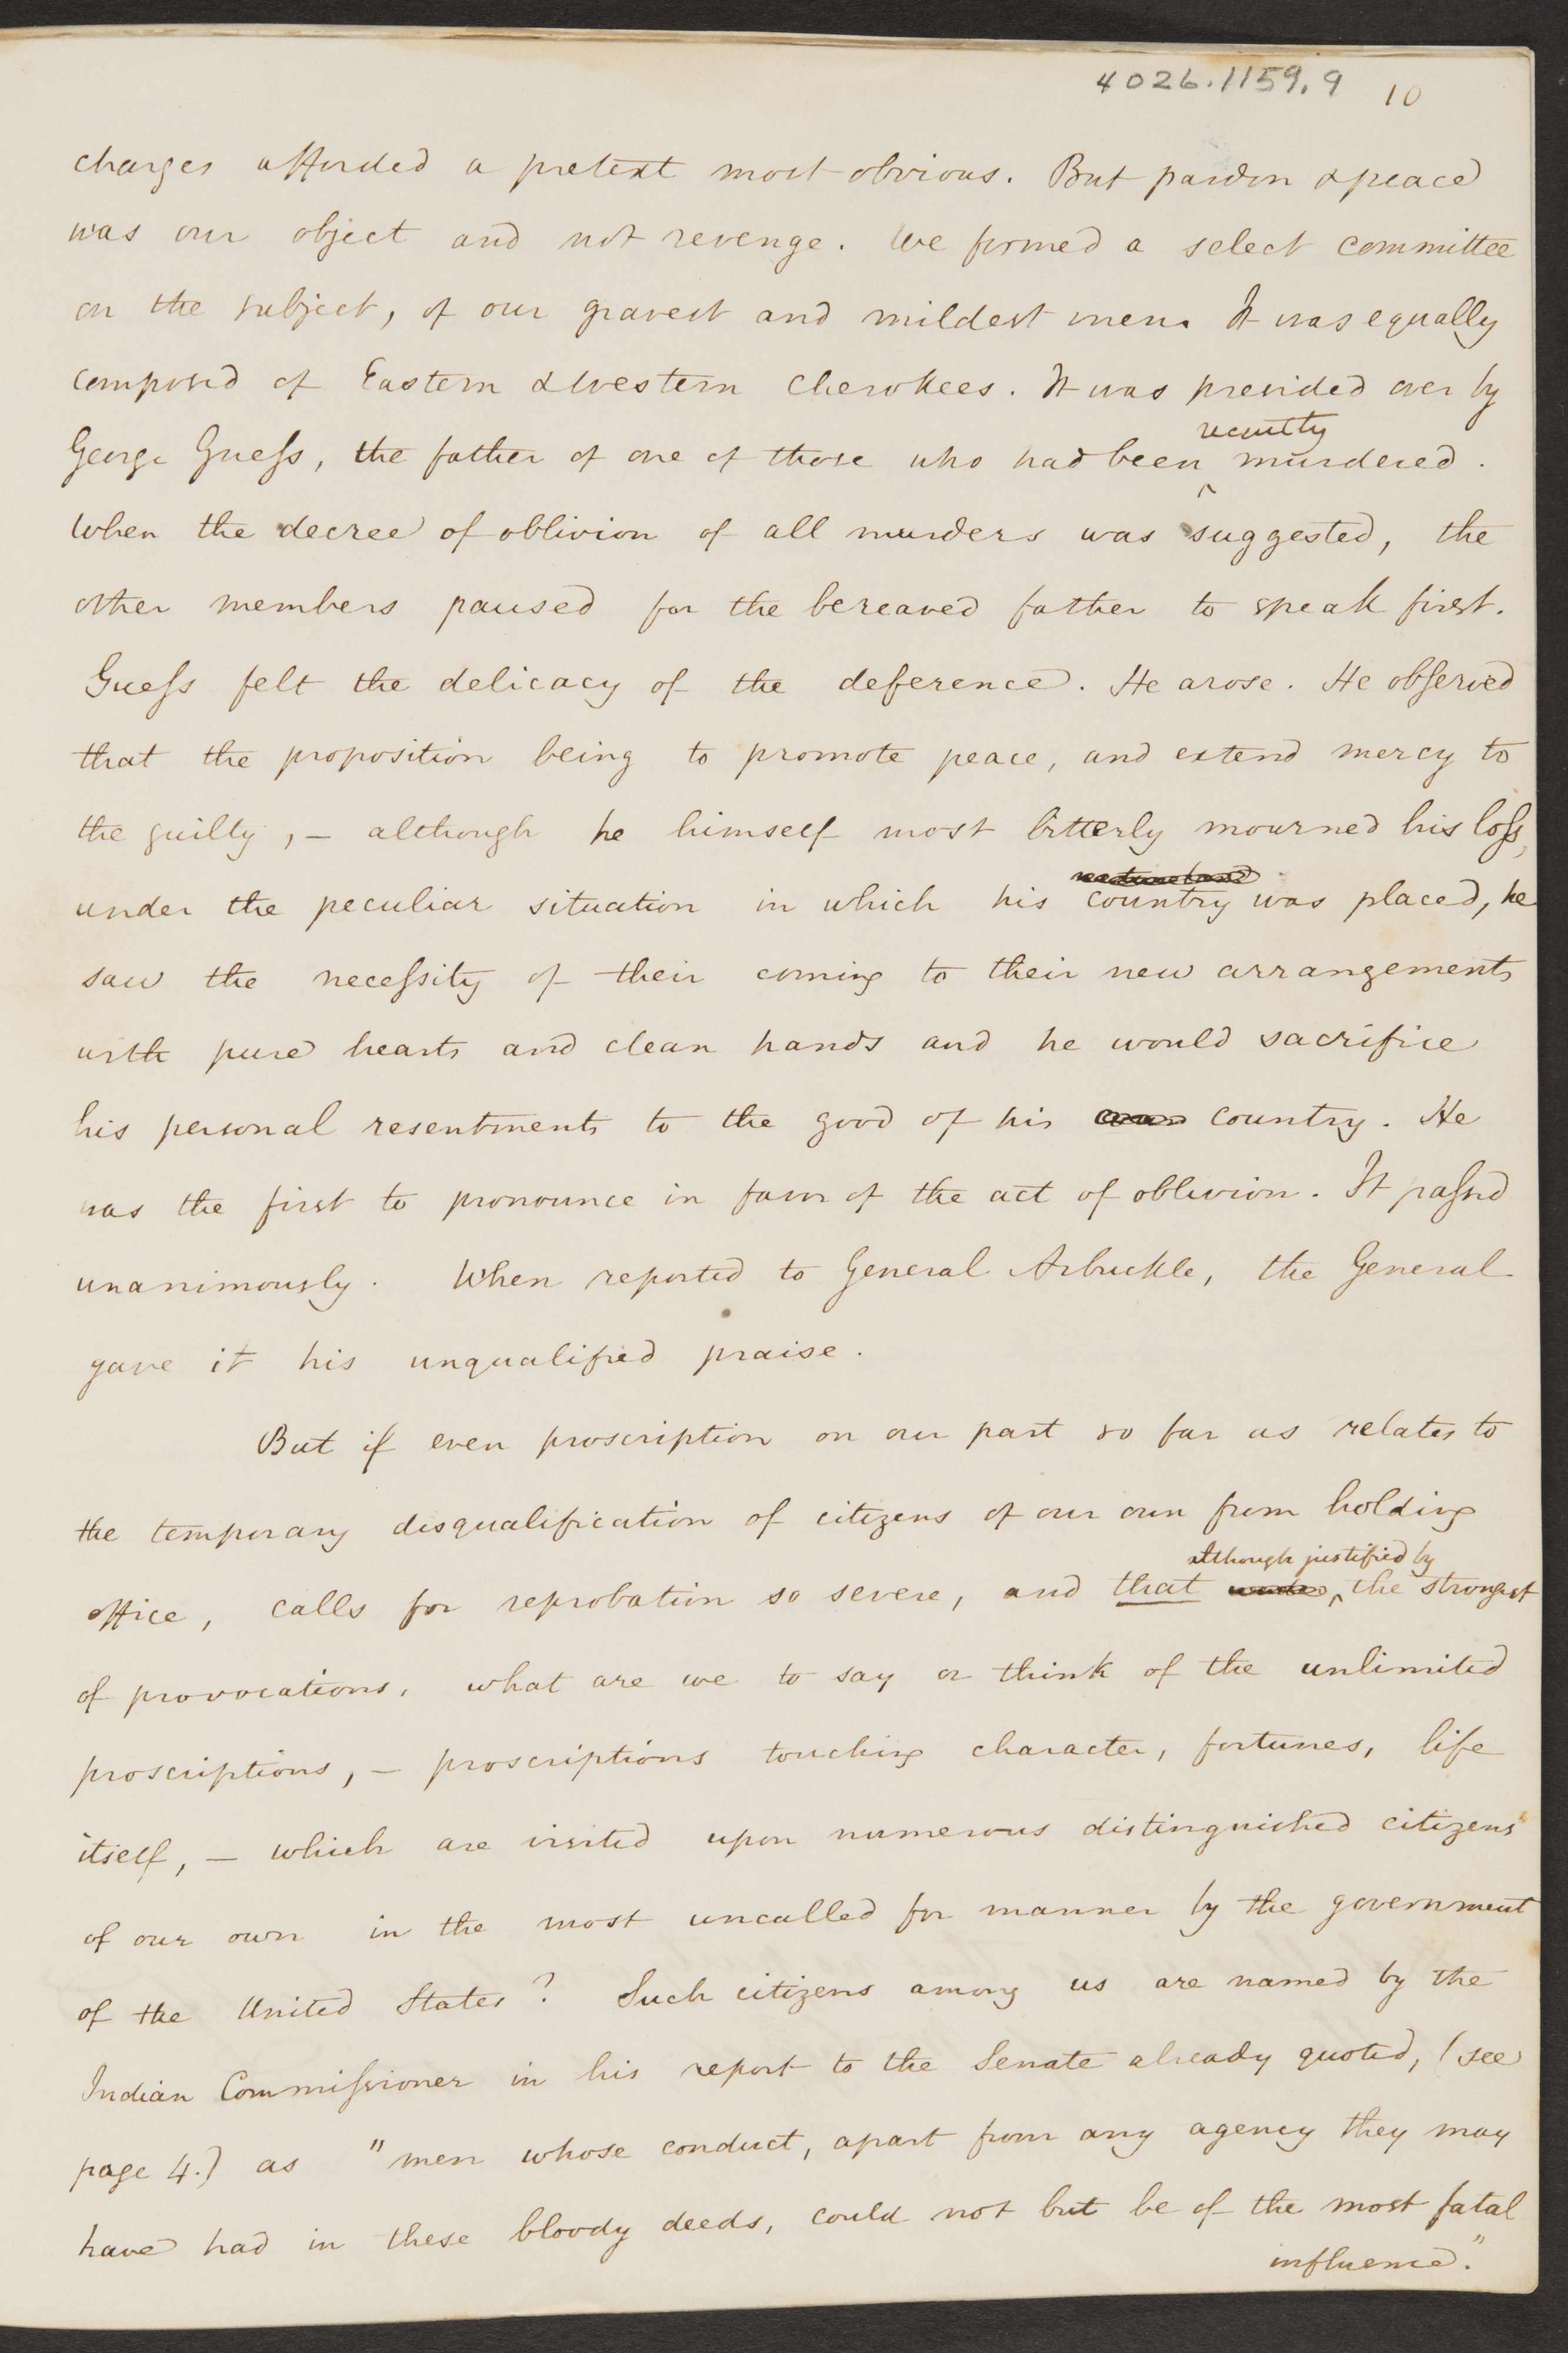 4026.1159.9 10
charges afforded a pretext most obvious. But pardon & peace
was our object and not revenge. We formed a select committee
on the subject, of our gravest and mildest men. It was equally
composed of Eastern & Western Cherokees. It was presided over by
recently
George Gueſs, the father of one of those who had been ^ murdered.
When the decree of oblivion of all murders was suggested, the
other members paused for the bereaved father to speak first.
Gueſs felt the delicacy of the deference. He arose. He obſerved
that the proposition being to promote peace, and extend mercy to
the guilty, – although he himself most bitterly mourned his loſs,
under the peculiar situation in which his country was placed, he
saw the neceſsity of their coming to their new arrangements
with pure hearts and clean hands and he would sacrifice
his personal resentments to the good of his country. He
was the first to pronounce in favor of the act of oblivion. It paſsed
unanimously. When reported to General Arbuckle, the General
gave it his unqualified praise.
But if even proscription on our part so far as relates to
the temporary disqualification of citizens of our own from holding
although justified by
office, calls for reprobation so severe, and that ^ the strongest
of provocations, what are we to say or think of the unlimited
proscriptions, – proscriptions touching character, fortunes, life
itself, – which are visited upon numerous distinguished citizens
of our own in the most uncalled for manner by the government
of the United States? Such citizens among us are named by the
Indian Commiſsioner in his report to the Senate already quoted, (see
page 4.) as "men whose conduct, apart from any agency they may
have had in these bloody deeds, could not but be of the most fatal
influence."